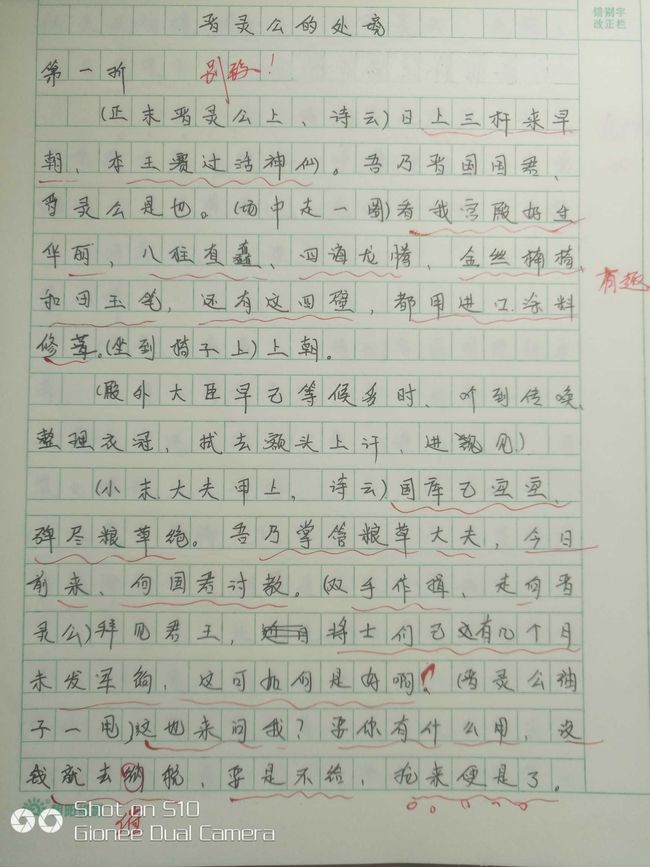 错别字
改正栏
晋灵公的处境
第一折 别致!
(正末晋灵公上、诗云)日上三杆来早
朝、本王赛过活神仙。吾乃晋国国君、
晋灵公是也。(场中走一圈)看我宫殿好生
华丽,八柱直矗、四海龙腾、金丝楠椅、
和田玉笔,还有这四壁,都用进口涂料
有趣
修葺。(坐到椅子上)上朝。
(殿外大臣早已等候多时、听到传唤、
整理衣冠,拭去额头上汗,进觐见)
(小末大夫甲上,诗云)国库已空空、
弹尽粮草绝。吾乃掌管粮草大夫,今日
前来、向国君讨教。(双手作揖、走向晋
灵公)拜见君王,将士们已还有几个月
未发军饷,这可如何是好啊!(晋灵公袖
子一甩)这也来问我?要你有什么用,没
钱就去纳税、要是不给,抢来便是了。
Shot on S10
Gionee Dual Camera